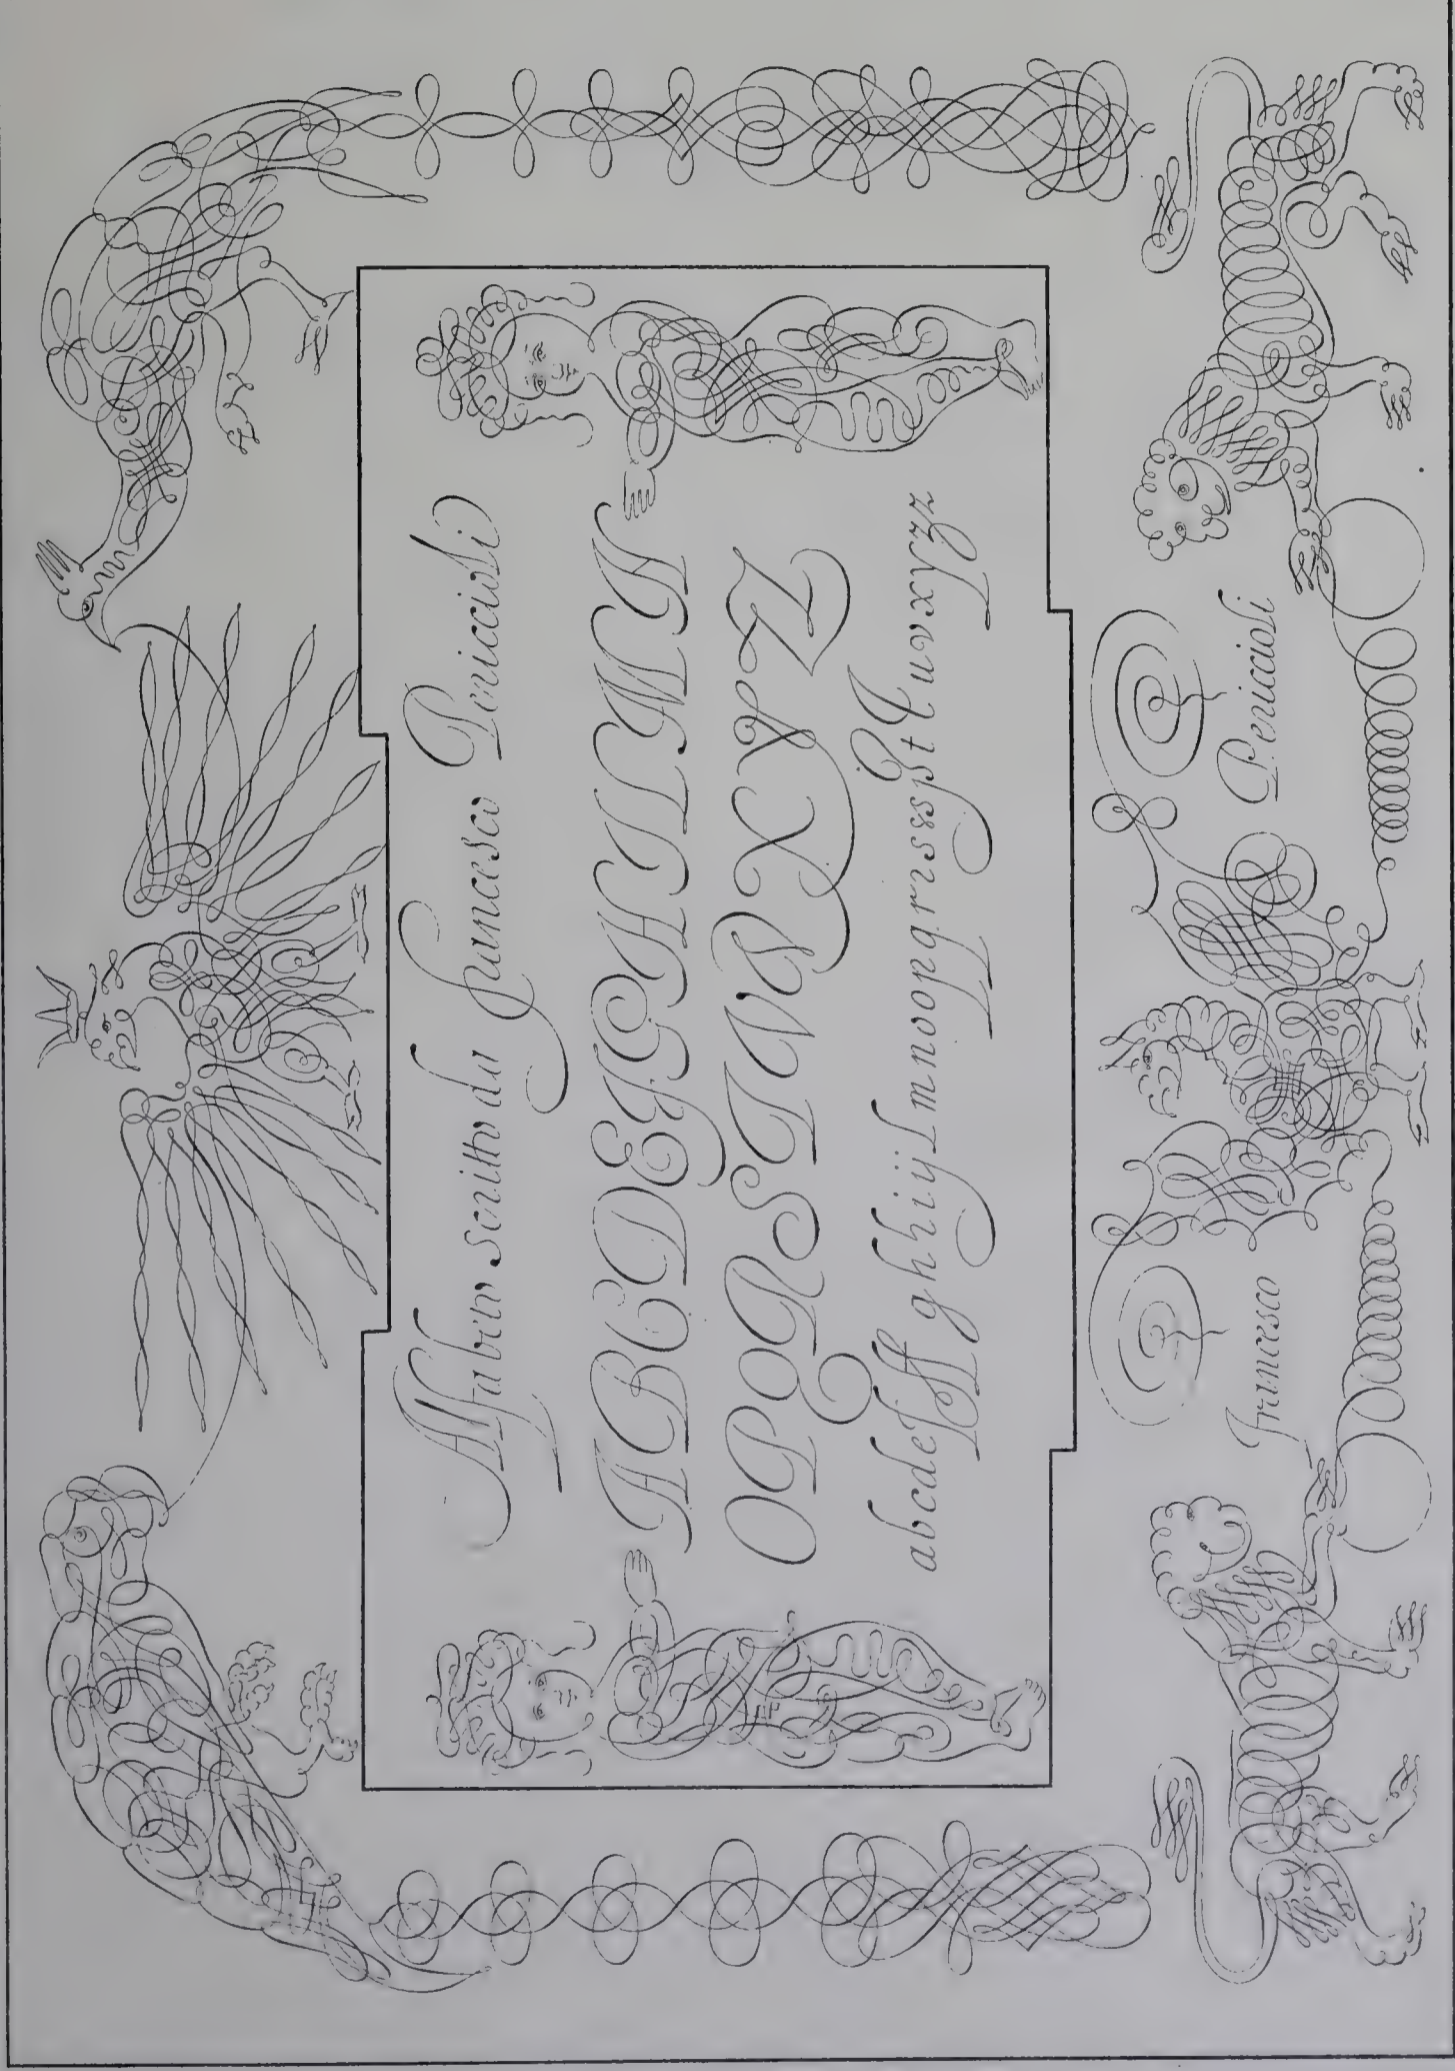 Alfabeto scritto da Francesco Periccioli
A B C D E F G H I L M N
O P Q R S T V W X Y Z
a b c d e f ff g h h i ij l m n v o o p q r r s s s ß t
u v v x y z z
Francesco
Periccioli